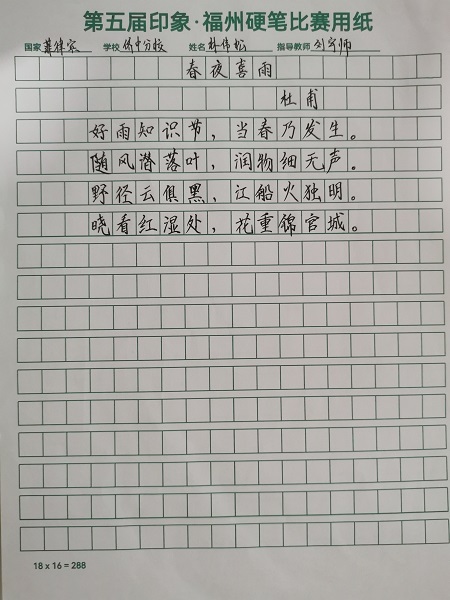 第五届印象·福州硬笔比赛用纸
国家 菲律宾 学校 侨中分校 姓名 林伟松 指导教师 刘宇师
春夜喜雨
杜甫
好雨知识节，当春乃发生。
随风潜落叶，润物细无声。
野径云俱黑，江船火独明。
晓看红湿处，花重锦官城。
18 x 16 = 288